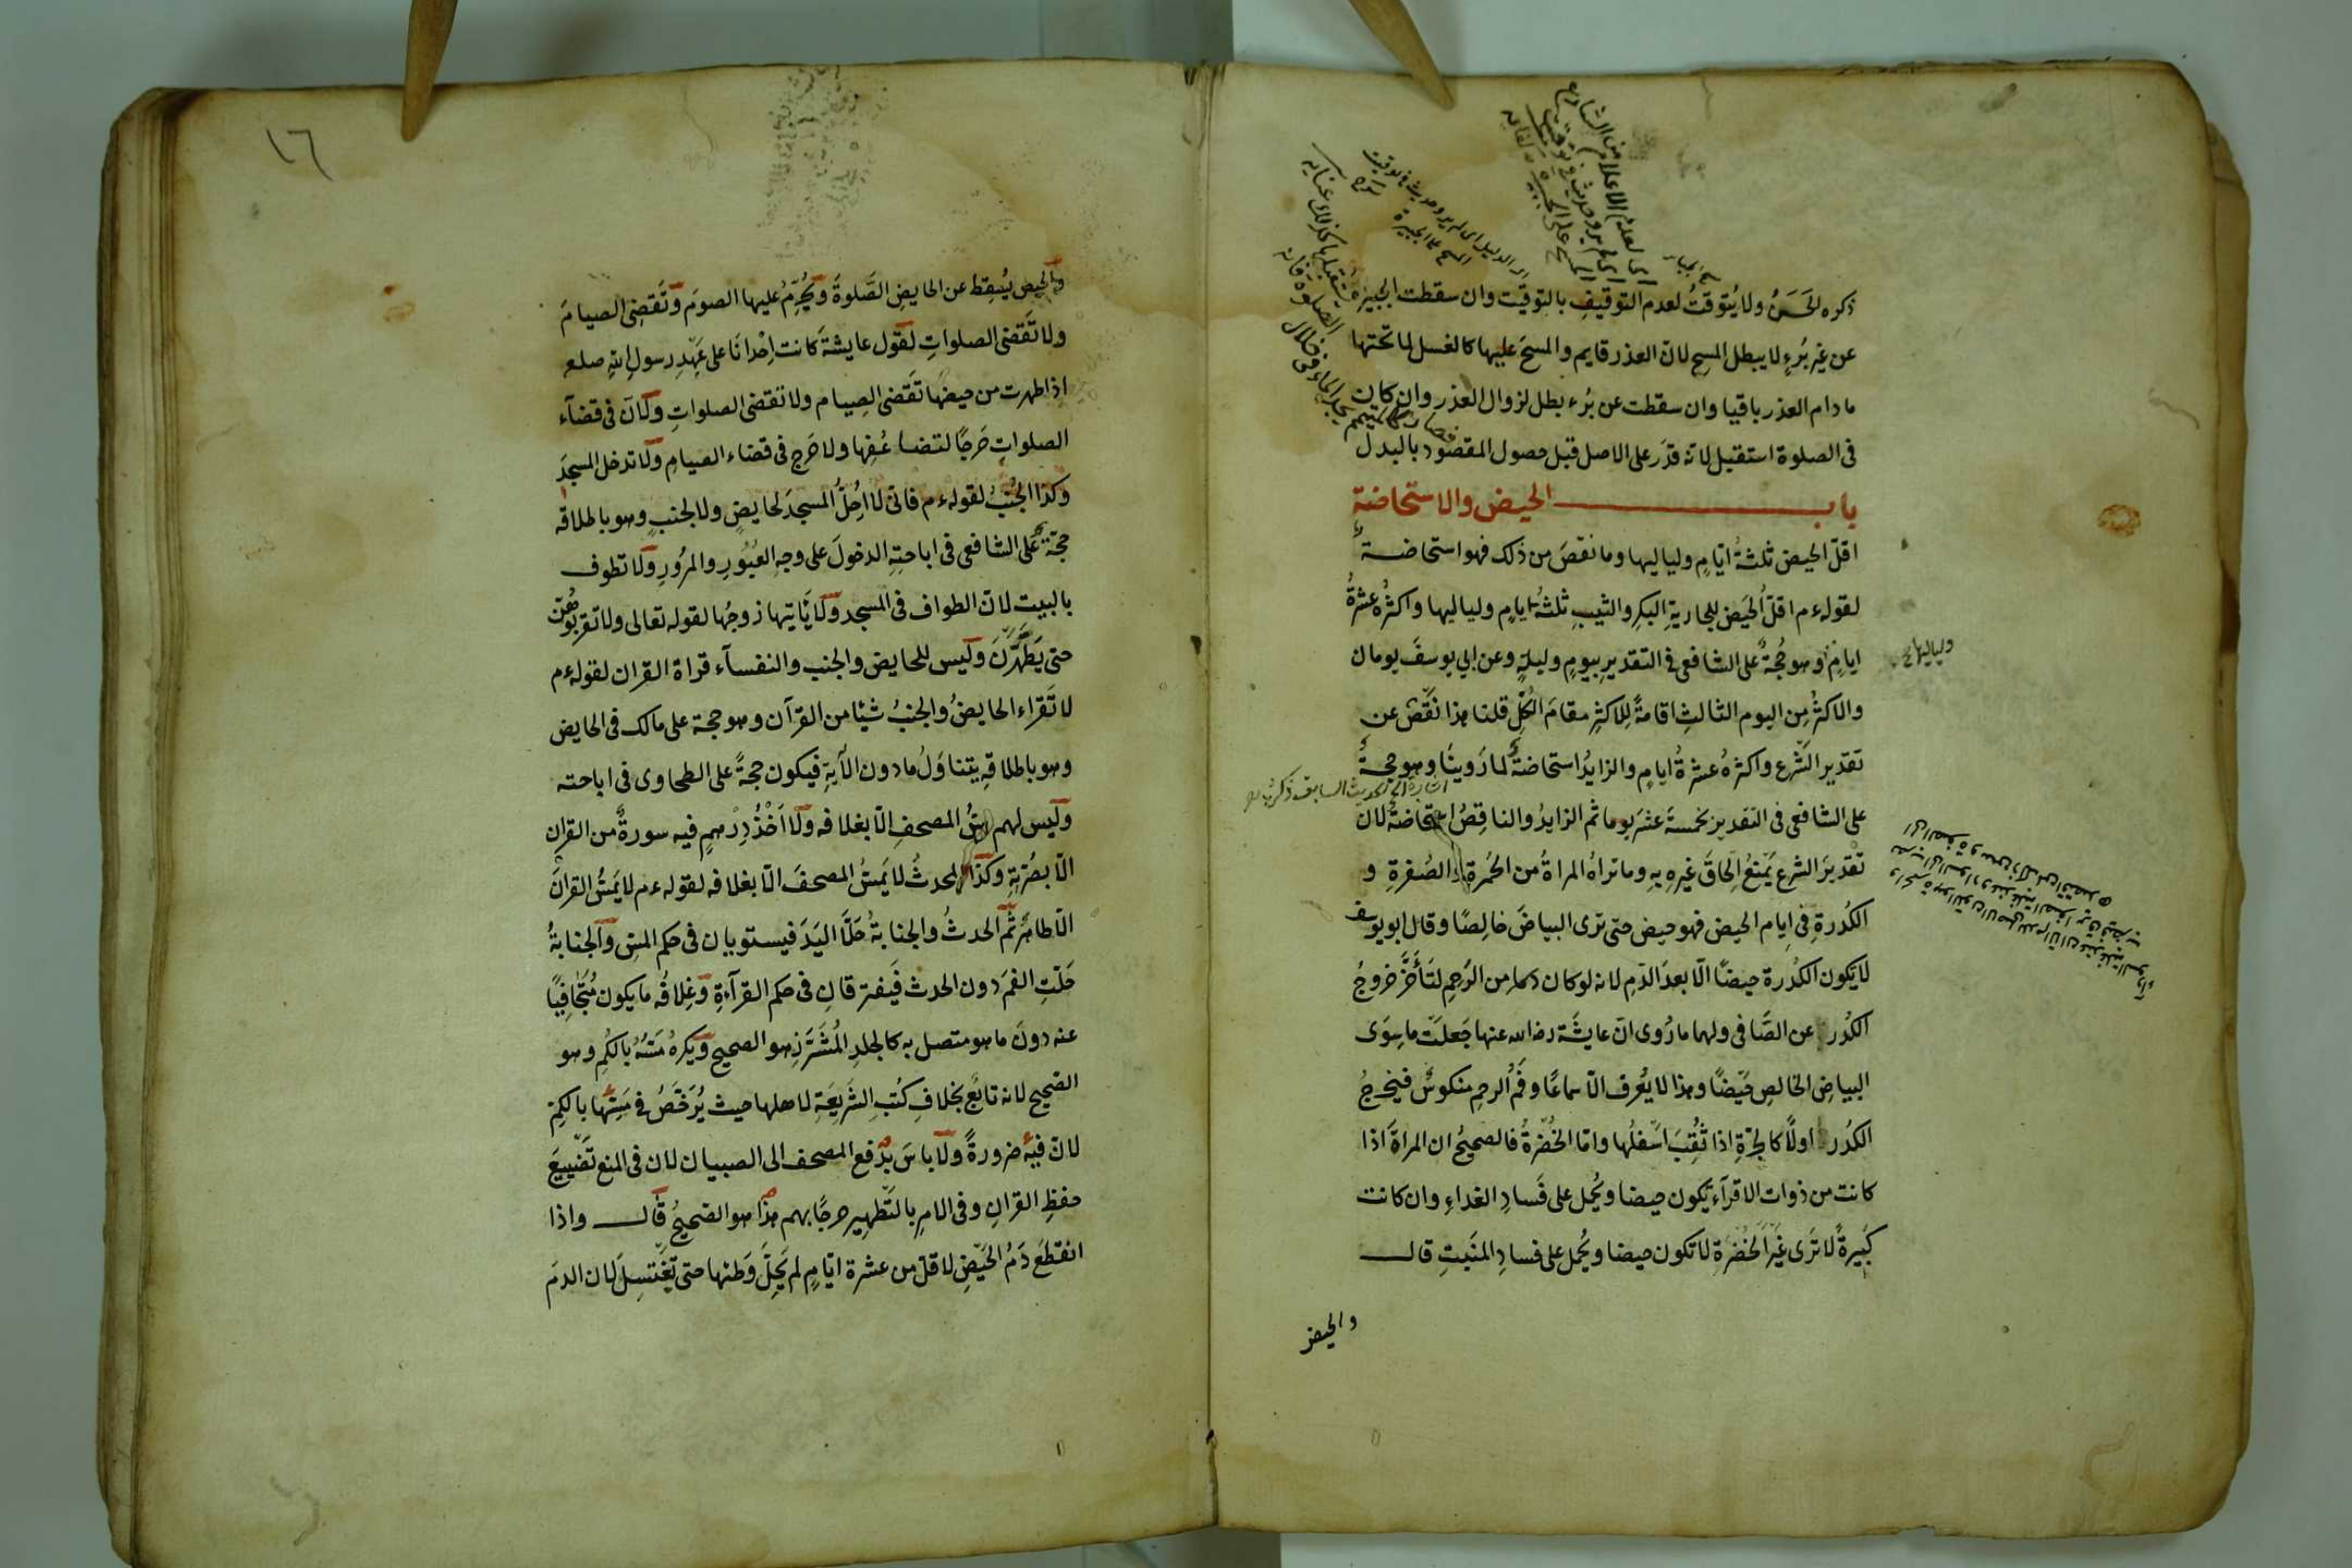 ذكره الحَسَنُ ولا يُتَوقتُ لعدم التوقيفِ بالتوقيت وان سقطت الجبيرة
عن غير بُرءٍ لا يبطل المسح لان العذر قايم والمسحُ عليها كالغسل لما تحتها
ما دام العذر باقيا وان سقطت عن بُرء بطل لزوال العذر وان كان
فى الصلوة استقبل لانه قدَر على الاصل قبل حصول المقصود بالبدل
باب الحيض والاستحاضة
اقلّ الحيض ثلثةُ ايّامٍ ولياليها وما نقصَ من ذلك فهو استحاضة
لقوله ع م اقلُّ الحَيض للجاريةِ البكرِ والثيبِ ثلثةُ ايامٍ ولياليها واكثرُه عشرةُ
ايامٍ وهو حُجةٌ على الشافعى فى التقديرِ بيومٍ وليلةٍ وعن ابى يوسفَ يومان
ولياليها
والاكثرُ مِن اليوم الثالثِ اقامةً للاكثرِ مقامَ الكُلِّ قلنا هذا نَقصٌ عن
تقدير الشَرعِ واكثرهُ عشرةُ ايامٍ والزايدُ استحاضةٌ لما رَوينَا وهو حجةٌ
اشارة الى الحديث السابق ذكره
على الشافعى فى التقدير بخمسةَ عشرَ يوما ثم الزايدُ والناقِصُ استحاضةٌ لانّ
تقديرَ الشرعِ يَمنَعُ اِلحاقَ غيرِه بِهِ وما تراهُ المراةُ من الحُمرةِ والصُفرةِ و
الكُدرةِ فى ايام الحيض فهو حيض حتى ترى البياضَ خالِصًا وقال ابو يوسف
لا تكون الكُدرة حيضًا الّا بعدَ الدَمِ لانه لو كان دما من الرَحِمِ لتَأَخَّرَ خروجُ
الكُدر عن الصَّافى ولهما ما رُوى انّ عايشَة رض الله عنها جَعلَت ما سِوَى
البياضِ الخالصِ حَيضًا وهذا لا يُعرف الّا سماعًا وفَمُ الرحِمِ منكوسٌ فيَخرجُ
الكُدر اولًا كالجَرّةِ اذا ثُقِبَ اَسْفلُها وامّا الخُضْرةُ فالصحيحُ ان المراةَ اذا
كانت من ذوات الاقرآءِ تكون حيضا ويُحمل على فَسادِ الغداءِ وان كانت
كَبيرةً لا تَرى غيرَ الخُضْرة لا تكون حيضا ويُحمل على فسادِ المنَبتِ قال
والحيض
١٦
والحيض يُسقِط عن الحايضِ الصَّلوةَ ويُحرِّمُ عليها الصومَ وتَقضِى الصيامَ
ولا تَقضى الصلواتِ لقول عايشةَ كانت اِحْدانَا على عَهْدِ رسولِ اللهِ صلعم
اذا طهرت من حيضها تَقضى الصِيام ولا تقضى الصلواتِ ولانّ فى قضآء
الصلواتِ حَرجًا لتضاعُفِها ولا حَرج فى قضاء الصيامِ ولا تدخل المسجدَ
وكذا الجُنُبُ لقوله ع م فانى لا اُحِلُّ المسجدَ لحايضٍ ولا لجنبٍ وهو باطلاقه
حجّة على الشافعى فى اباحتِهِ الدخولَ على وجهِ العُبُورِ والمرُورِ ولا تطوف
بالبيت لانّ الطواف فى المسجد ولا يَاتيها زوجُها لقوله تعالى ولا تقربُوهُنّ
حتى يَطهُرْنَ وليس للحايض والجنب والنفسآء قراة القران لقوله ع م
لا تَقراء الحايضُ والجنبُ شيئا من القرآن وهو حجة على مالك فى الحايض
وهو باطلاقِهِ يتناوَلُ ما دون الآيةِ فيكون حجةً على الطحاوى فى اباحته
وليس لهم مسُّ المصحفِ الّا بغلافه ولا اَخْذُ دِرْهمٍ فيه سورةٌ من القران
الّا بصُرّتِهِ وكذا المحدثُ لا يَمسُّ المصحفَ الّا بغلافه لقوله ع م لا يَمسُّ القرانَ
الّا طاهرٌ ثم الحدثُ والجنابةُ حَلَّا اليَدَ فيستويان فى حكم المسِّ والجنابةُ
حَلّتِ الفمَ دون الحدث فيَفترقانِ فى حكم القرآءةِ وغِلافُه ما يكون مُتَجَافِيًا
عنه دونَ ما هو متصل به كالجلدِ المُشَرَّزِ هو الصحيح ويكرهُ مَسُّهُ بالكُمِ وهو
الصحيح لانه تابعٌ بخلافِ كتُبِ الشَرِيعَةِ لاهلها حيث يُرَخَّصُ فى مَسِّها بالكُمِّ
لانّ فيه ضرورةً ولا باسَ بدفع المصحف الى الصبيان لان فى المنع تَضْييعَ
حفظِ القرانِ وفى الامرِ بالتَطْهيرِ حرجًا بهم هذا هو الصحيحُ قال واذا
انقطعَ دَمُ الحَيْضِ لاقلَّ من عشرة ايّامٍ لم يَحِلَّ وَطئها حتى تَغْتسِلَ لان الدمَ